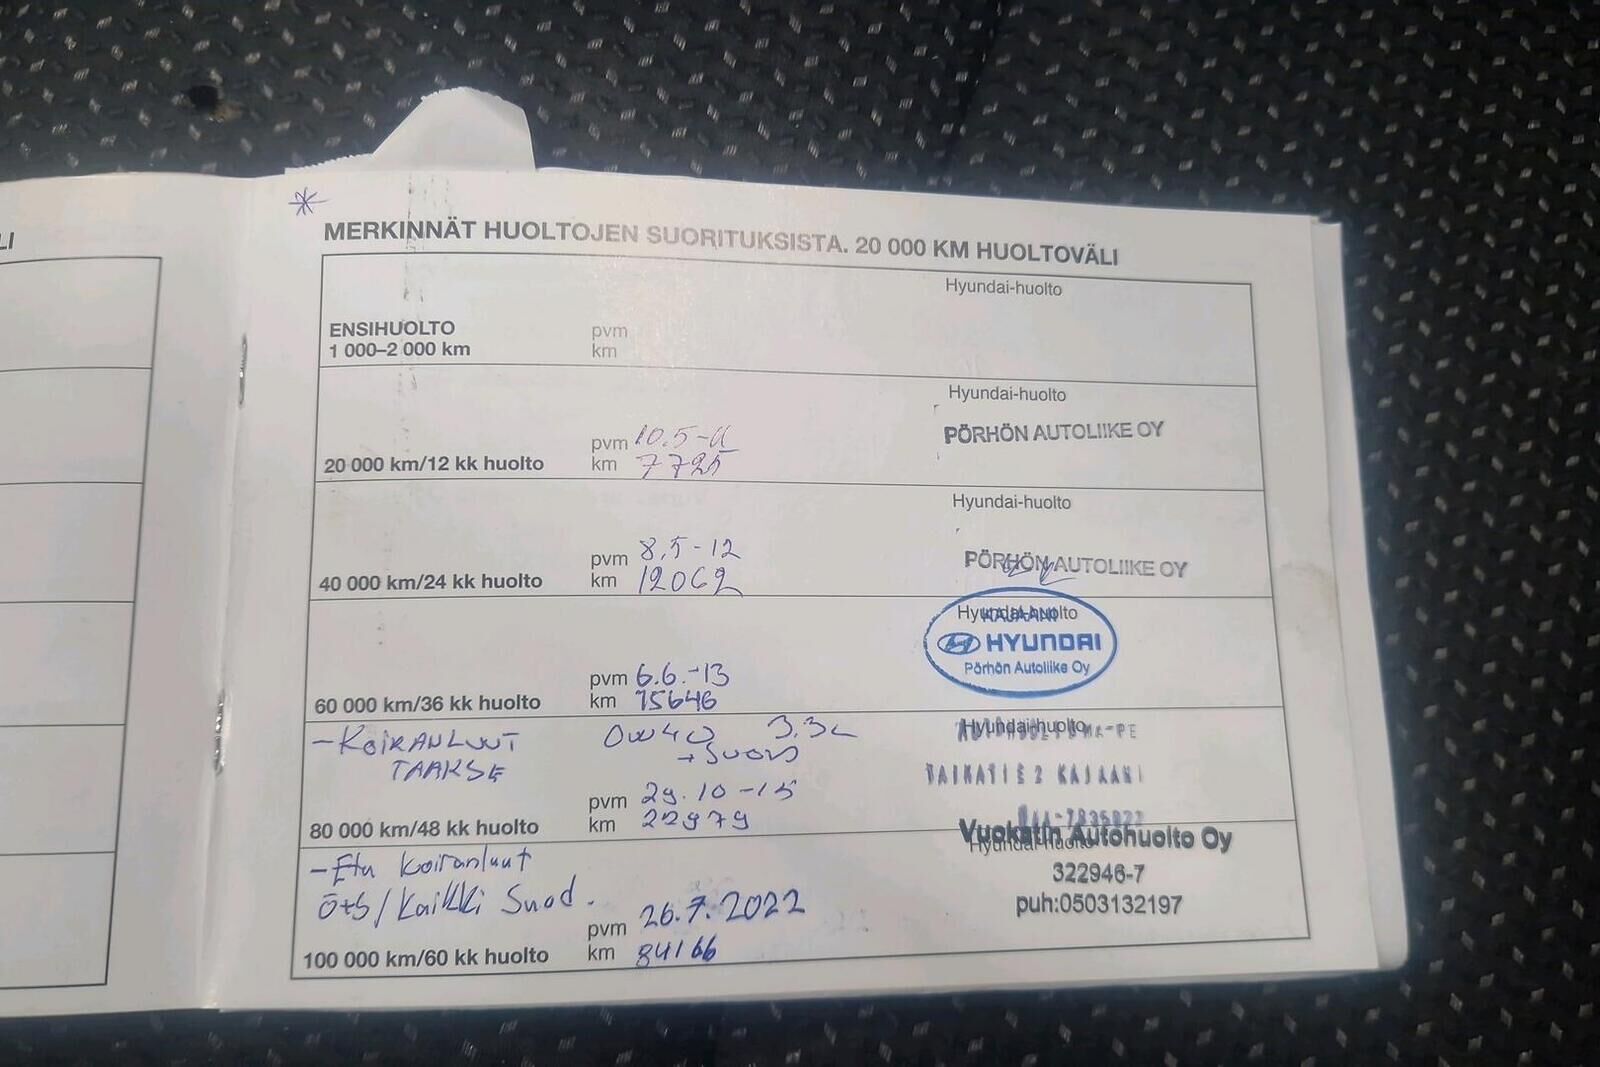 LI
*
MERKINNÄT HUOLTOJEN SUORITUKSISTA. 20 000 KM HUOLTOVÄLI
Hyundai-huolto
ENSIHUOLTO
1 000–2 000 km
pvm
km
Hyundai-huolto
PÖRHÖN AUTOLIIKE OY
20 000 km/12 kk huolto
pvm 10.5-11
km 7725
Hyundai-huolto
PÖRHÖN AUTOLIIKE OY
40 000 km/24 kk huolto
pvm 8.5-12
km 12062
Hyundai-huolto
KAJAANI
HYUNDAI
Pörhön Autoliike Oy
60 000 km/36 kk huolto
pvm 6.6.-13
km 15646
Hyundai-huolto
-KOIRANLUUT
TAAKSE
0W40 3.3L
+SUOD
TAIKATIE 2 KAJAANI
80 000 km/48 kk huolto
pvm 29.10-15
km 22979
Hyundai-huolto
Vuokatin Autohuolto Oy
322946-7
puh:0503132197
-Etu Koiranluut
Öts/Kaikki Suod.
100 000 km/60 kk huolto
pvm 26.7.2022
km 84166